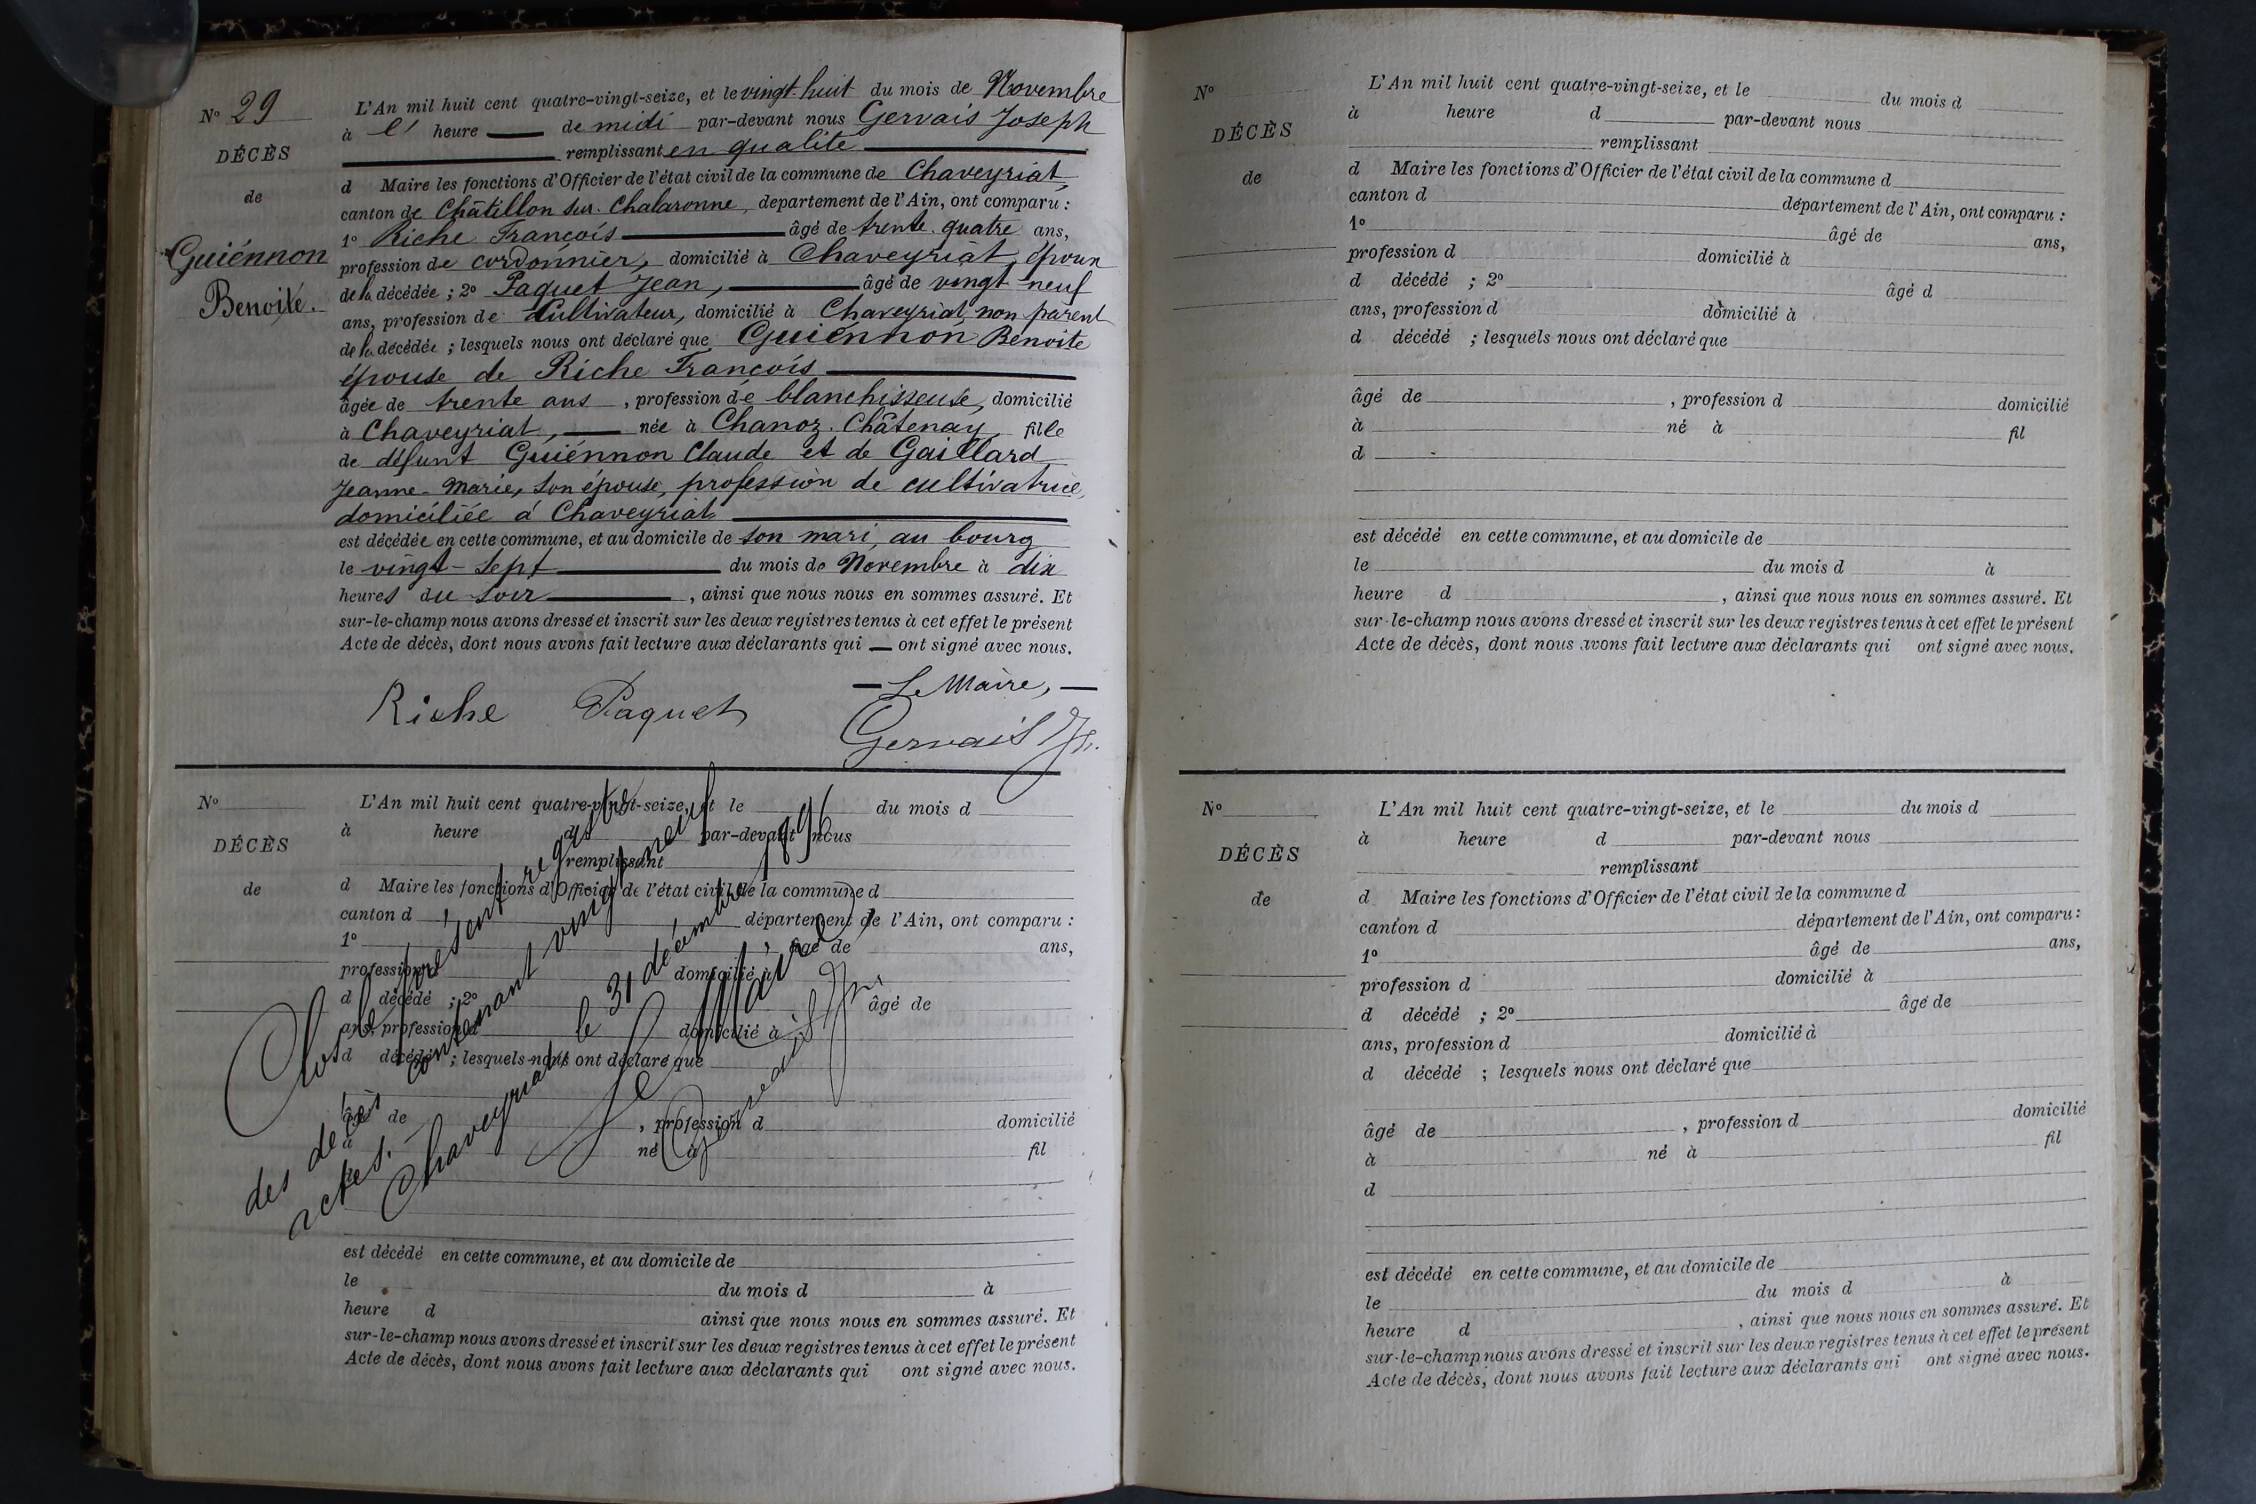 N° 29
DÉCÈS
de
Guiénnon
Benoite.
L'An mil huit cent quatre-vingt-seize, et le vingt-huit du mois de Novembre
à l' heure de midi par-devant nous Gervais Joseph
remplissant en qualité
d Maire les fonctions d'Officier de l'état civil de la commune de Chaveyriat,
canton de Châtillon sur. Chalaronne, département de l'Ain, ont comparu :
1° Riche François âgé de trente. quatre ans,
profession de cordonnier, domicilié à Chaveyriat, époux
de la décédée ; 2° Paquet Jean, âgé de vingt neuf
ans, profession de Cultivateur, domicilié à Chaveyriat, non parent
de la décédée ; lesquels nous ont déclaré que Guiénnon Benoite
épouse de Riche François
âgée de trente ans , profession de blanchisseuse, domicilié
à Chaveyriat, née à Chanoz. Châtenay fille
de défunt Guiénnon Claude et de Gaillard
Jeanne-Marie, son épouse, profession de cultivatrice,
domiciliée à Chaveyriat
est décédée en cette commune, et au domicile de son mari, au bourg
le vingt-sept du mois de Novembre à dix
heures du soir , ainsi que nous nous en sommes assuré. Et
sur-le-champ nous avons dressé et inscrit sur les deux registres tenus à cet effet le présent
Acte de décès, dont nous avons fait lecture aux déclarants qui — ont signé avec nous.
— Le Maire, —
Riche Paquet
Gervais Jh.
N°
DÉCÈS
de
L'An mil huit cent quatre-vingt-seize, et le du mois d
à heure d par-devant nous
remplissant
d Maire les fonctions d'Officier de l'état civil de la commune d
canton d département de l'Ain, ont comparu :
1° , âgé de ans,
profession d domicilié à
d décédé ; 2° âgé de
ans, profession d domicilié à
d décédé ; lesquels nous ont déclaré que
âgé de , profession d domicilié
à né à fil
de
est décédé en cette commune, et au domicile de
le du mois d à
heure d ainsi que nous nous en sommes assuré. Et
sur-le-champ nous avons dressé et inscrit sur les deux registres tenus à cet effet le présent
Acte de décès, dont nous avons fait lecture aux déclarants qui ont signé avec nous.
Clos le présent registre
des décès contenant vingt neuf
actes.
Chaveyriat le 31 décembre 1896
Le Maire,
Gervais Jh.
N°
DÉCÈS
de
L'An mil huit cent quatre-vingt-seize, et le du mois d
à heure d par-devant nous
remplissant
d Maire les fonctions d'Officier de l'état civil de la commune d
canton d département de l'Ain, ont comparu :
1° âgé de ans,
profession d domicilié à
d décédé ; 2° âgé d
ans, profession d domicilié à
d décédé ; lesquels nous ont déclaré que
âgé de , profession d domicilié
à né à fil
d
est décédé en cette commune, et au domicile de
le du mois d à
heure d , ainsi que nous nous en sommes assuré. Et
sur-le-champ nous avons dressé et inscrit sur les deux registres tenus à cet effet le présent
Acte de décès, dont nous avons fait lecture aux déclarants qui ont signé avec nous.
N°
DÉCÈS
de
L'An mil huit cent quatre-vingt-seize, et le du mois d
à heure d par-devant nous
remplissant
d Maire les fonctions d'Officier de l'état civil de la commune d
canton d département de l'Ain, ont comparu :
1° âgé de ans,
profession d domicilié à
d décédé ; 2° âgé de
ans, profession d domicilié à
d décédé ; lesquels nous ont déclaré que
âgé de , profession d domicilié
à né à fil
d
est décédé en cette commune, et au domicile de
le du mois d à
heure d , ainsi que nous nous en sommes assuré. Et
sur-le-champ nous avons dressé et inscrit sur les deux registres tenus à cet effet le présent
Acte de décès, dont nous avons fait lecture aux déclarants qui ont signé avec nous.